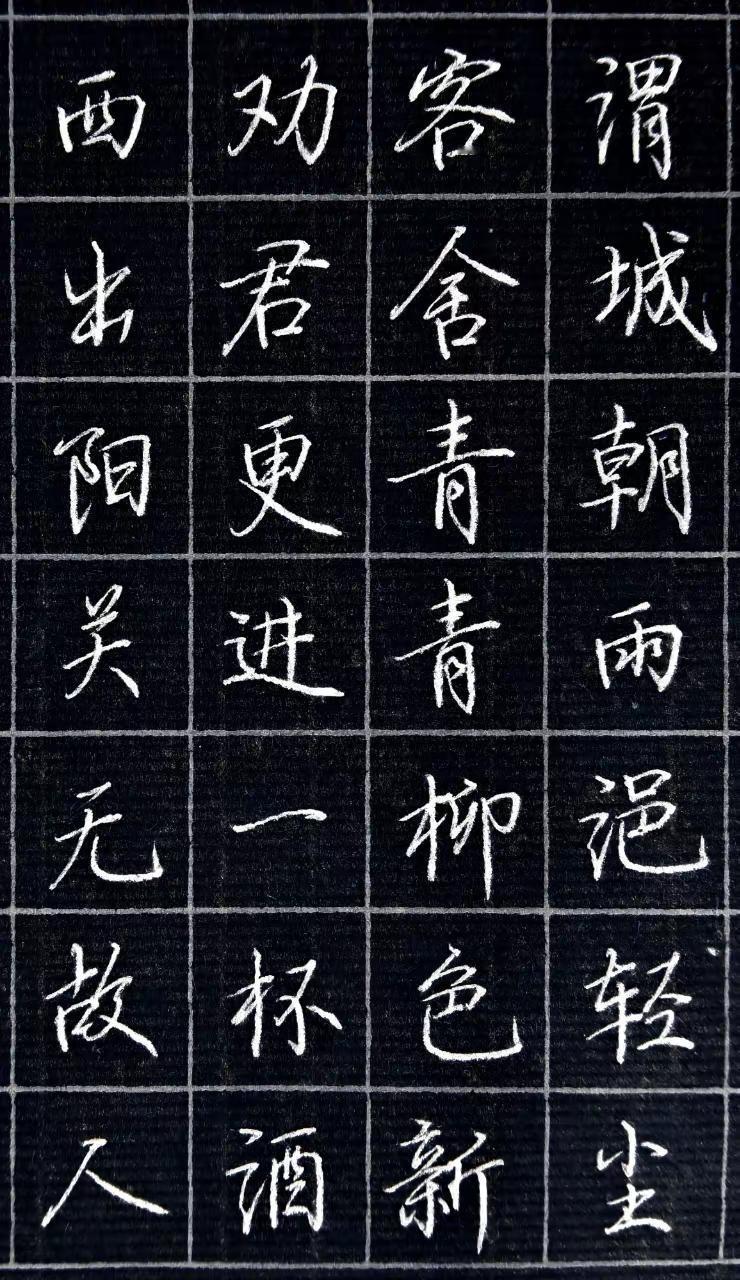 渭城朝雨浥轻尘
客舍青青柳色新
劝君更进一杯酒
西出阳关无故人